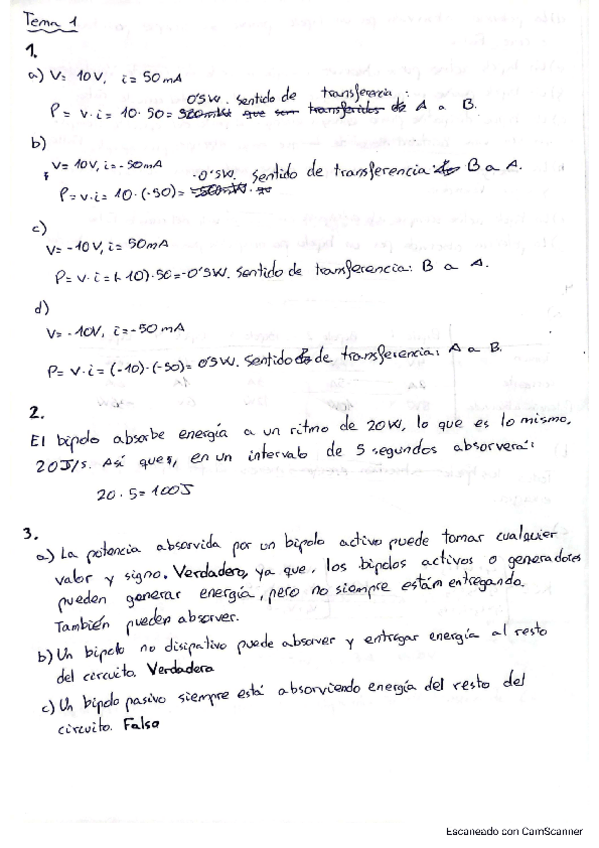 Tema 1
1.
a) V= 10V, i= 50mA
P= v·i= 10·50= 0'5W. Sentido de transferencia: A a B.
b)
V= 10V, i=-50mA
P= v·i= 10·(-50)= -0'5W. Sentido de transferencia: B a A.
c)
V= -10V, i= 50mA
P= v·i= (-10)·50=-0'5W. Sentido de transferencia: B a A.
d)
V= -10V, i=-50mA
P= v·i= (-10)·(-50)= 0'5W. Sentido de transferencia: A a B.
2.
El bipolo absorbe energía a un ritmo de 20W, lo que es lo mismo,
20J/s. Así que, en un intervalo de 5 segundos absorverá:
20·5=100J
3.
a) La potencia absorvida por un bipolo activo puede tomar cualquier
valor y signo. Verdadero, ya que, los bipolos activos o generadores
pueden generar energía, pero no siempre están entregando.
También pueden absorver.
b) Un bipolo no disipativo puede absorver y entregar energía al resto
del circuito. Verdadera
c) Un bipolo pasivo siempre está absorviendo energía del resto del
circuito. Falso
Escaneado con CamScanner